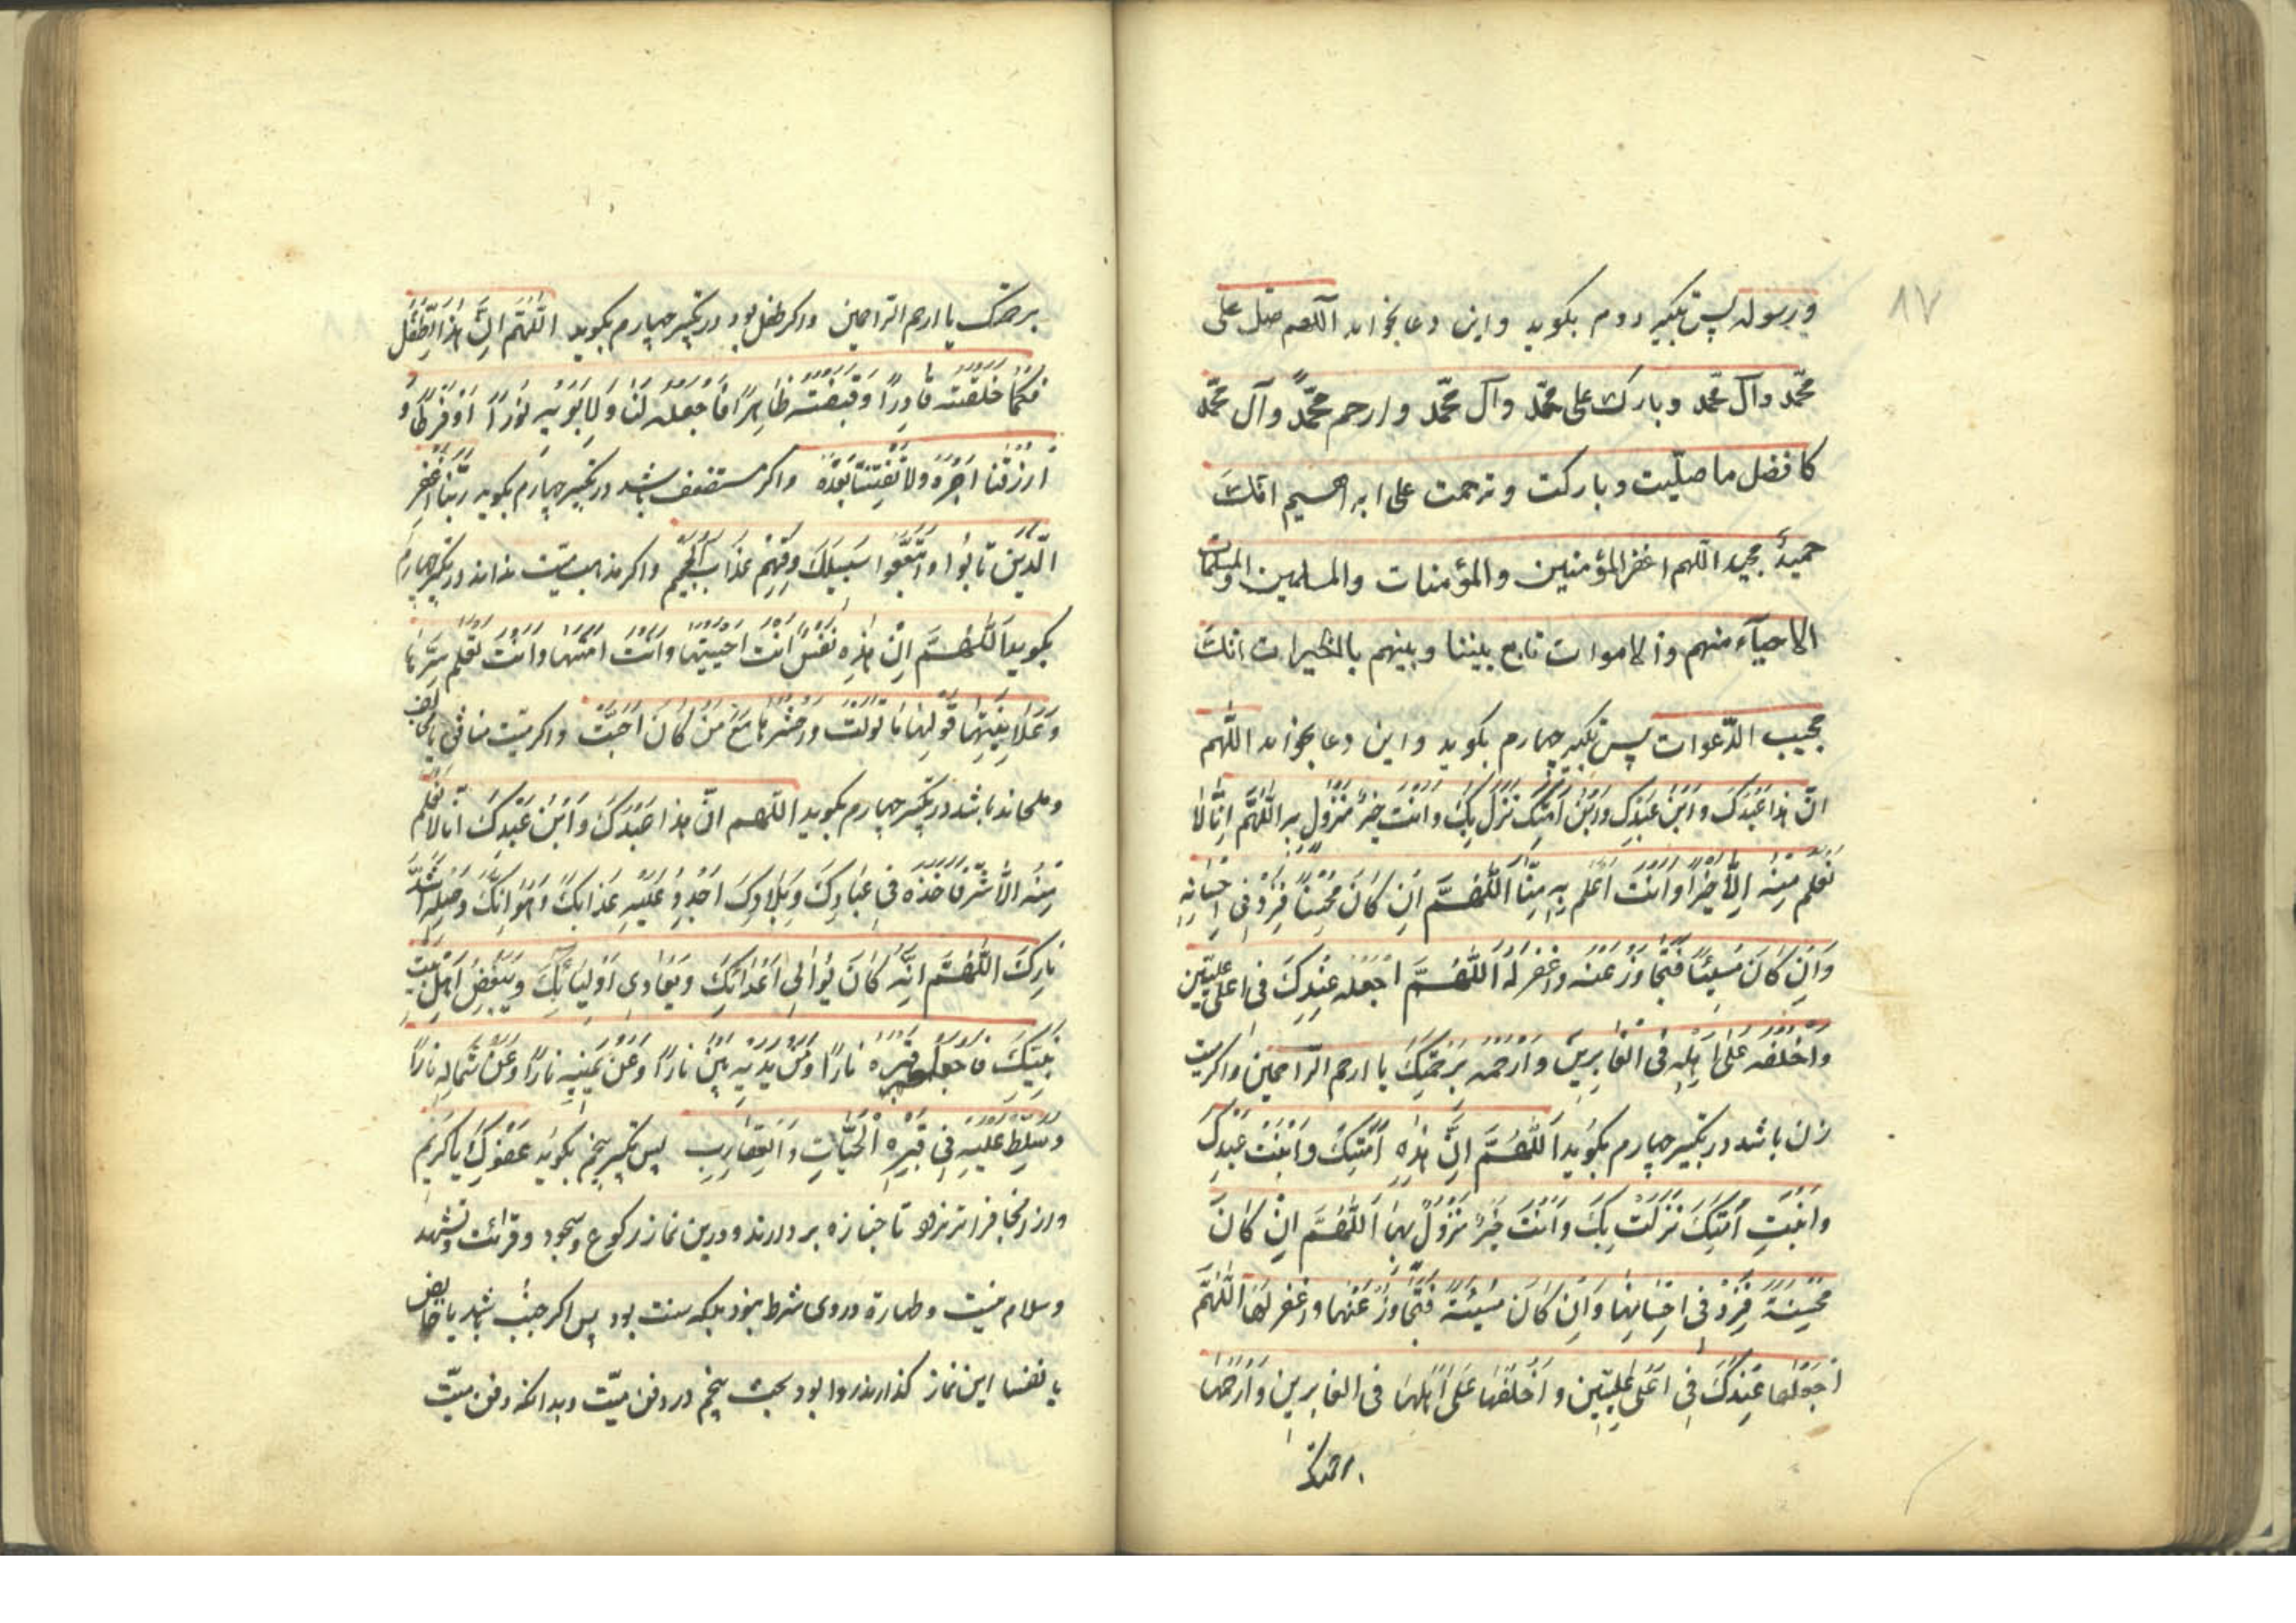 ۸۷
و رسوله پس تکبیر دوم بکوید و این دعا بخواند اللهم صل علی
محمّد وآل محمّد وبارک علی محمّد وآل محمّد وارحم محمّداً وآل محمّد
کافضل ما صلّیت وبارکت وترحمت علی ابرهیم انّک
حمیدٌ مجید اللهم اغفر للمؤمنین والمؤمنات والمسلمین والمسلمات
الاحیآء منهم والاموات تابع بیننا وبینهم بالخیرات انّک
مجیب الدّعوات پس تکبیر چهارم بکوید و این دعا بخواند اللّهم
انّ هذا عَبْدُکَ وَابْنُ عَبْدِکَ وَابْنُ اَمَتِکَ نَزَلَ بِکَ وَاَنْتَ خَیْرُ مَنْزُولٍ بِهِ اَللّٰهُمَّ اِنّا لا
نَعْلَمُ مِنْهُ اِلّا خَیْراً وَاَنْتَ اَعْلَمُ بِهِ مِنّا اَللّٰهُمَّ اِنْ کانَ مُحْسِناً فَزِدْ فی اِحْسانِهِ
وَاِنْ کانَ مُسیئاً فَتَجاوَزْ عَنْهُ وَاغْفِرْ لَهُ اَللّٰهُمَّ اجْعَلْهُ عِنْدَکَ فی اَعلی عِلّیّین
وَاخْلُفْهُ عَلیٰ اَهْلِهِ فی الْغابِرینَ وَارْحَمْهُ بِرَحْمَتِکَ یا ارحم الرّاحمین و اکر میت
زن باشد در تکبیر چهارم بکوید اَللّٰهُمَّ اِنَّ هٰذِهِ اَمَتُکَ وَابْنَتُ عَبْدِکَ
وَابْنَتِ اَمَتِکَ نَزَلَتْ بِکَ وَاَنْتَ خَیْرُ مَنْزُولٍ بِهَا اَللّٰهُمَّ اِنْ کانَ
مُحْسِنَةً فَزِدْ فی اِحْسانِها وَاِنْ کانَ مُسیئَةً فَتَجاوَزْ عَنْها واغفر لَها اَللّٰهُمَّ
اجْعَلْها عِنْدَکَ فی اَعْلیٰ عِلّیّین وَاخْلُفْها عَلیٰ اَهْلِها فی الغابرین وَارْحَمْها
برحمتک
برحمتک یا ارحم الرّاحمین و اکر طفل بود در تکبیر چهارم بکوید اَللّٰهُمَّ اِنَّ هٰذَا الطِّفْلَ
فَکَما خَلَقْتَهُ قادِراً وَقَبَضْتَهُ طاهِراً فَاجْعَلْهُ لَنا وَلِاَبَوَیْهِ نُوراً اَوْ فَرَطاً وَ
ارْزُقْنا اَجْرَهُ وَلا تَفْتِنّا بَعْدَهُ و اکر مستضعف باشد در تکبیر چهارم بکوید رَبَّنَا اغْفِرْ
الَّذینَ تابُوا وَاتَّبَعُوا سَبیلَکَ وَقِهِمْ عَذابَ الْجَحیمِ و اکر مذهب میّت نداند در تکبیر چهارم
بکوید اَللّٰهُمَّ اِنَّ هٰذِهِ نَفْسٌ اَنْتَ اَحْیَیْتَها وَاَنْتَ اَمَتَّها وَاَنْتَ تَعْلَمُ سِرَّها
وَعَلانِیَتَها فَوَلِّها ما تَوَلَّتْ وَاحْشُرْها مَعَ مَنْ کانَ اَحَبَّتْ و اکر میّت منافق یا مخالف
و ملحد باشد در تکبیر چهارم بکوید اللّهم انّ هذا عَبْدُکَ وَابْنُ عَبْدِکَ اِنّا لا نَعْلَمُ
مِنْهُ اِلّا شَرّاً فَاخْذُهُ فی عِبادِکَ وَبِلادِکَ عَلَیْهِ عَذابَکَ وَهَوانَکَ وَصِلْهِ اَشَدَّ
نارِکَ اَللّٰهُمَّ اِنَّهُ کانَ یُوالی اَعْدائَکَ وَیُعادی اَوْلِیائَکَ وَیُبْغِضُ اَهْلَ بَیْتِ
نَبِیِّکَ فَاجْعَلْ قَبْرَهُ ناراً وَمِنْ بَیْنِ یَدَیْهِ ناراً وَعَنْ یَمینِهِ ناراً وَعَنْ شِمالِهِ ناراً
وَسَلِّطْ عَلَیْهِ فی قَبْرِهِ الْحَیّاتِ وَالْعَقارِبَ پس تکبیر پنجم بکوید عَفْوَکَ یا کَریمُ
و از آنجا فراتر نرود تا جنازه بردارند و درین نماز رکوع و سجود و قرائت و تشهد
و سلام نیست و طهارة در وی شرط نبود بلکه سنت بود پس اکر جنب باشد یا حائض
یا نفسا این نماز کذارند روا بود بحث پنجم در دفن میّت و بدانکه دفن میّت